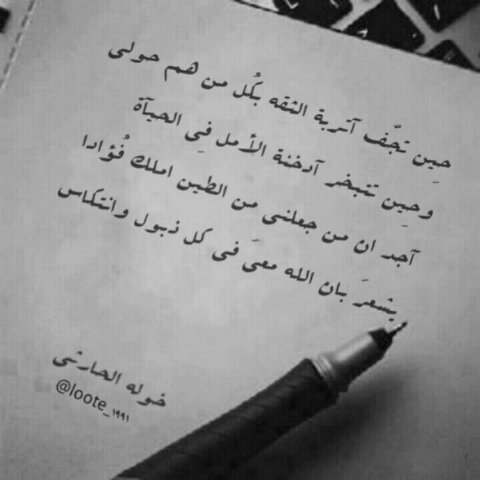 حِين تجّف آتربة الثقه بكُل من هم حولى
وحِين تتبخر آدخنة الأمل فِى الحيآة
آجد ان من جعلنى من الطين املك فُؤادا
يشعرَ بان الله معىَ فى كل ذبول وانتكاس
خوله الحارثى
@loote_١٩٩١